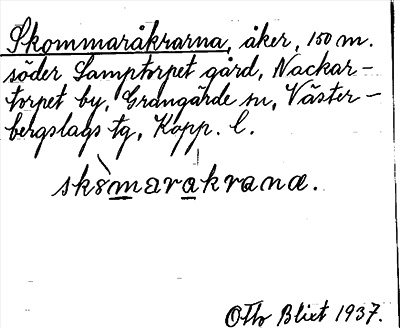 Skommaråkrarna, åker, 150 m.
söder Lamptorpet gård, Nackar-
torpet by, Grangärde sn, Väster-
bergslags tg, Kopp. l.
sk8marakrana.
Otto Blixt 1937.